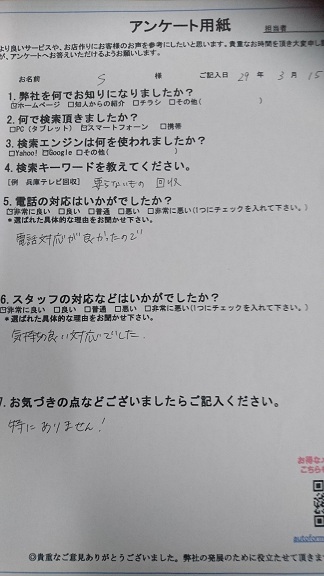 アンケート用紙
担当者
より良いサービスや、お店作りにお客様のお声を参考にしたいと思います。貴重なお時間を頂き大変申し
が、アンケートへお答えいただけるようお願いします。
お名前 S 様 ご記入日 29 年 3 月 15
1. 弊社を何でお知りになりましたか?
☑ホームページ □知人からの紹介 □チラシ □その他( )
2. 何で検索頂きましたか?
□PC(タブレット) ☑スマートフォーン □携帯
3. 検索エンジンは何を使われましたか?
□Yahoo! ☑Google □その他( )
4. 検索キーワードを教えてください。
[例 兵庫テレビ回収] 要らないもの 回収
5. 電話の対応はいかがでしたか?
☑非常に良い □良い □普通 □悪い □非常に悪い(1つにチェックを入れて下さい。)
*選ばれた具体的な理由をお聞かせ下さい。
電話対応が良かったので
6. スタッフの対応などはいかがでしたか?
☑非常に良い □良い □普通 □悪い □非常に悪い(1つにチェックを入れて下さい。)
*選ばれた具体的な理由をお聞かせ下さい。
気持ち良い対応でした.
7. お気づきの点などございましたらご記入ください。
特にありません!
お得な
こちら
autoform
◎貴重なご意見ありがとうございました。弊社の発展のために役立たせて頂きま